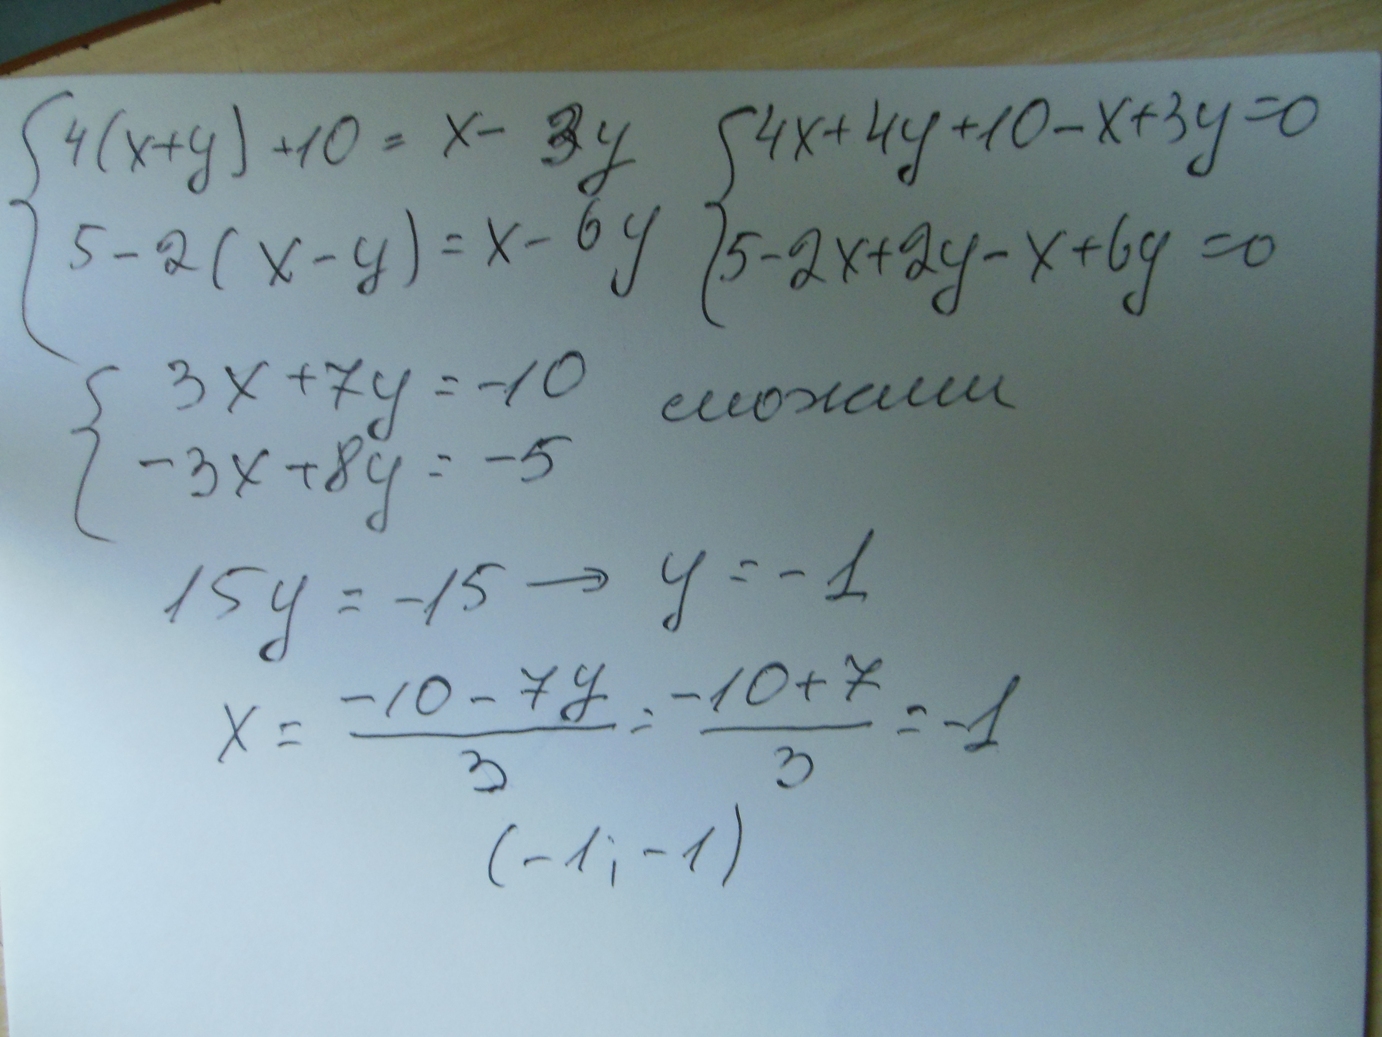 4(x+y)+10 = x- 3y
5-2(x-y)=x-6y
4x+4y+10-x+3y=0
5-2x+2y-x+6y=0
3x+7y=-10 сложили
-3x+8y=-5
15y=-15 → y=-1
x= -10-7y/3 = -10+7/3 = -1
(-1; -1)